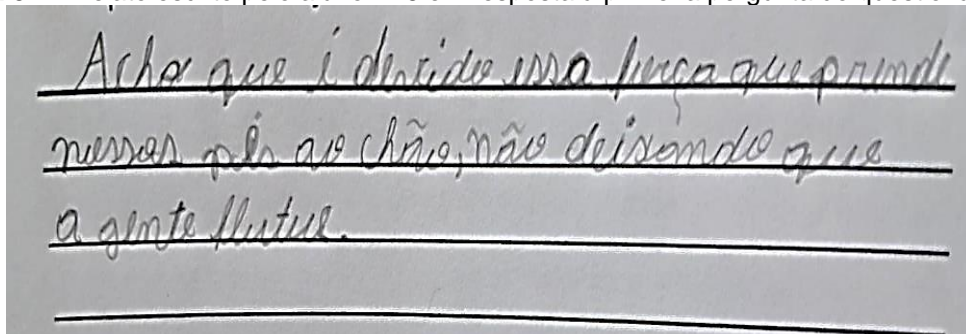 Acho que é devido essa força que prende
nossos pés ao chão, não deixando que
a gente flutue.